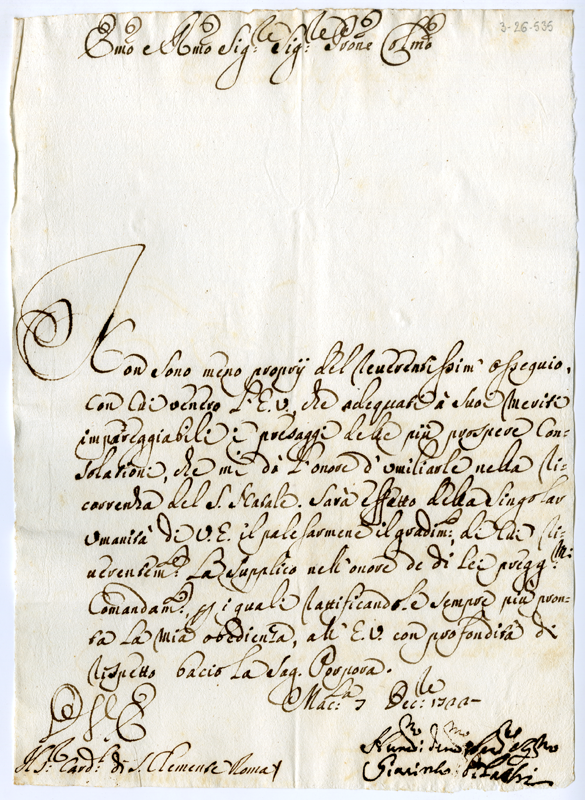 3-26-535
Emo e Rmo Sig:re Sig:re Prone Colmo
Non sono meno proprij del reverentissim° osseguio,
con cui venero l'E.V., che adequati à suoi meriti
impareggiabili i presaggi delle più prospere Con-
solationi, che mi dà l'onore d'umiliarle nella ri-
correnza del S. Natale. Sarà effetto della singolar
umanità di V.E. il palesarmene il gradim:to de cui ri-
verentem:te La supplico nell'onore de di Lei pregg:mi
Comandam:ti, p i quali rattificandole sempre più pron-
ta La mia obedienza, all'E.V. con profondità di
rispetto bacio La Sag. Porpora.
Mac:ta 7 Dec:re
Sr Card:l di S. Clemente Roma
Giacinto